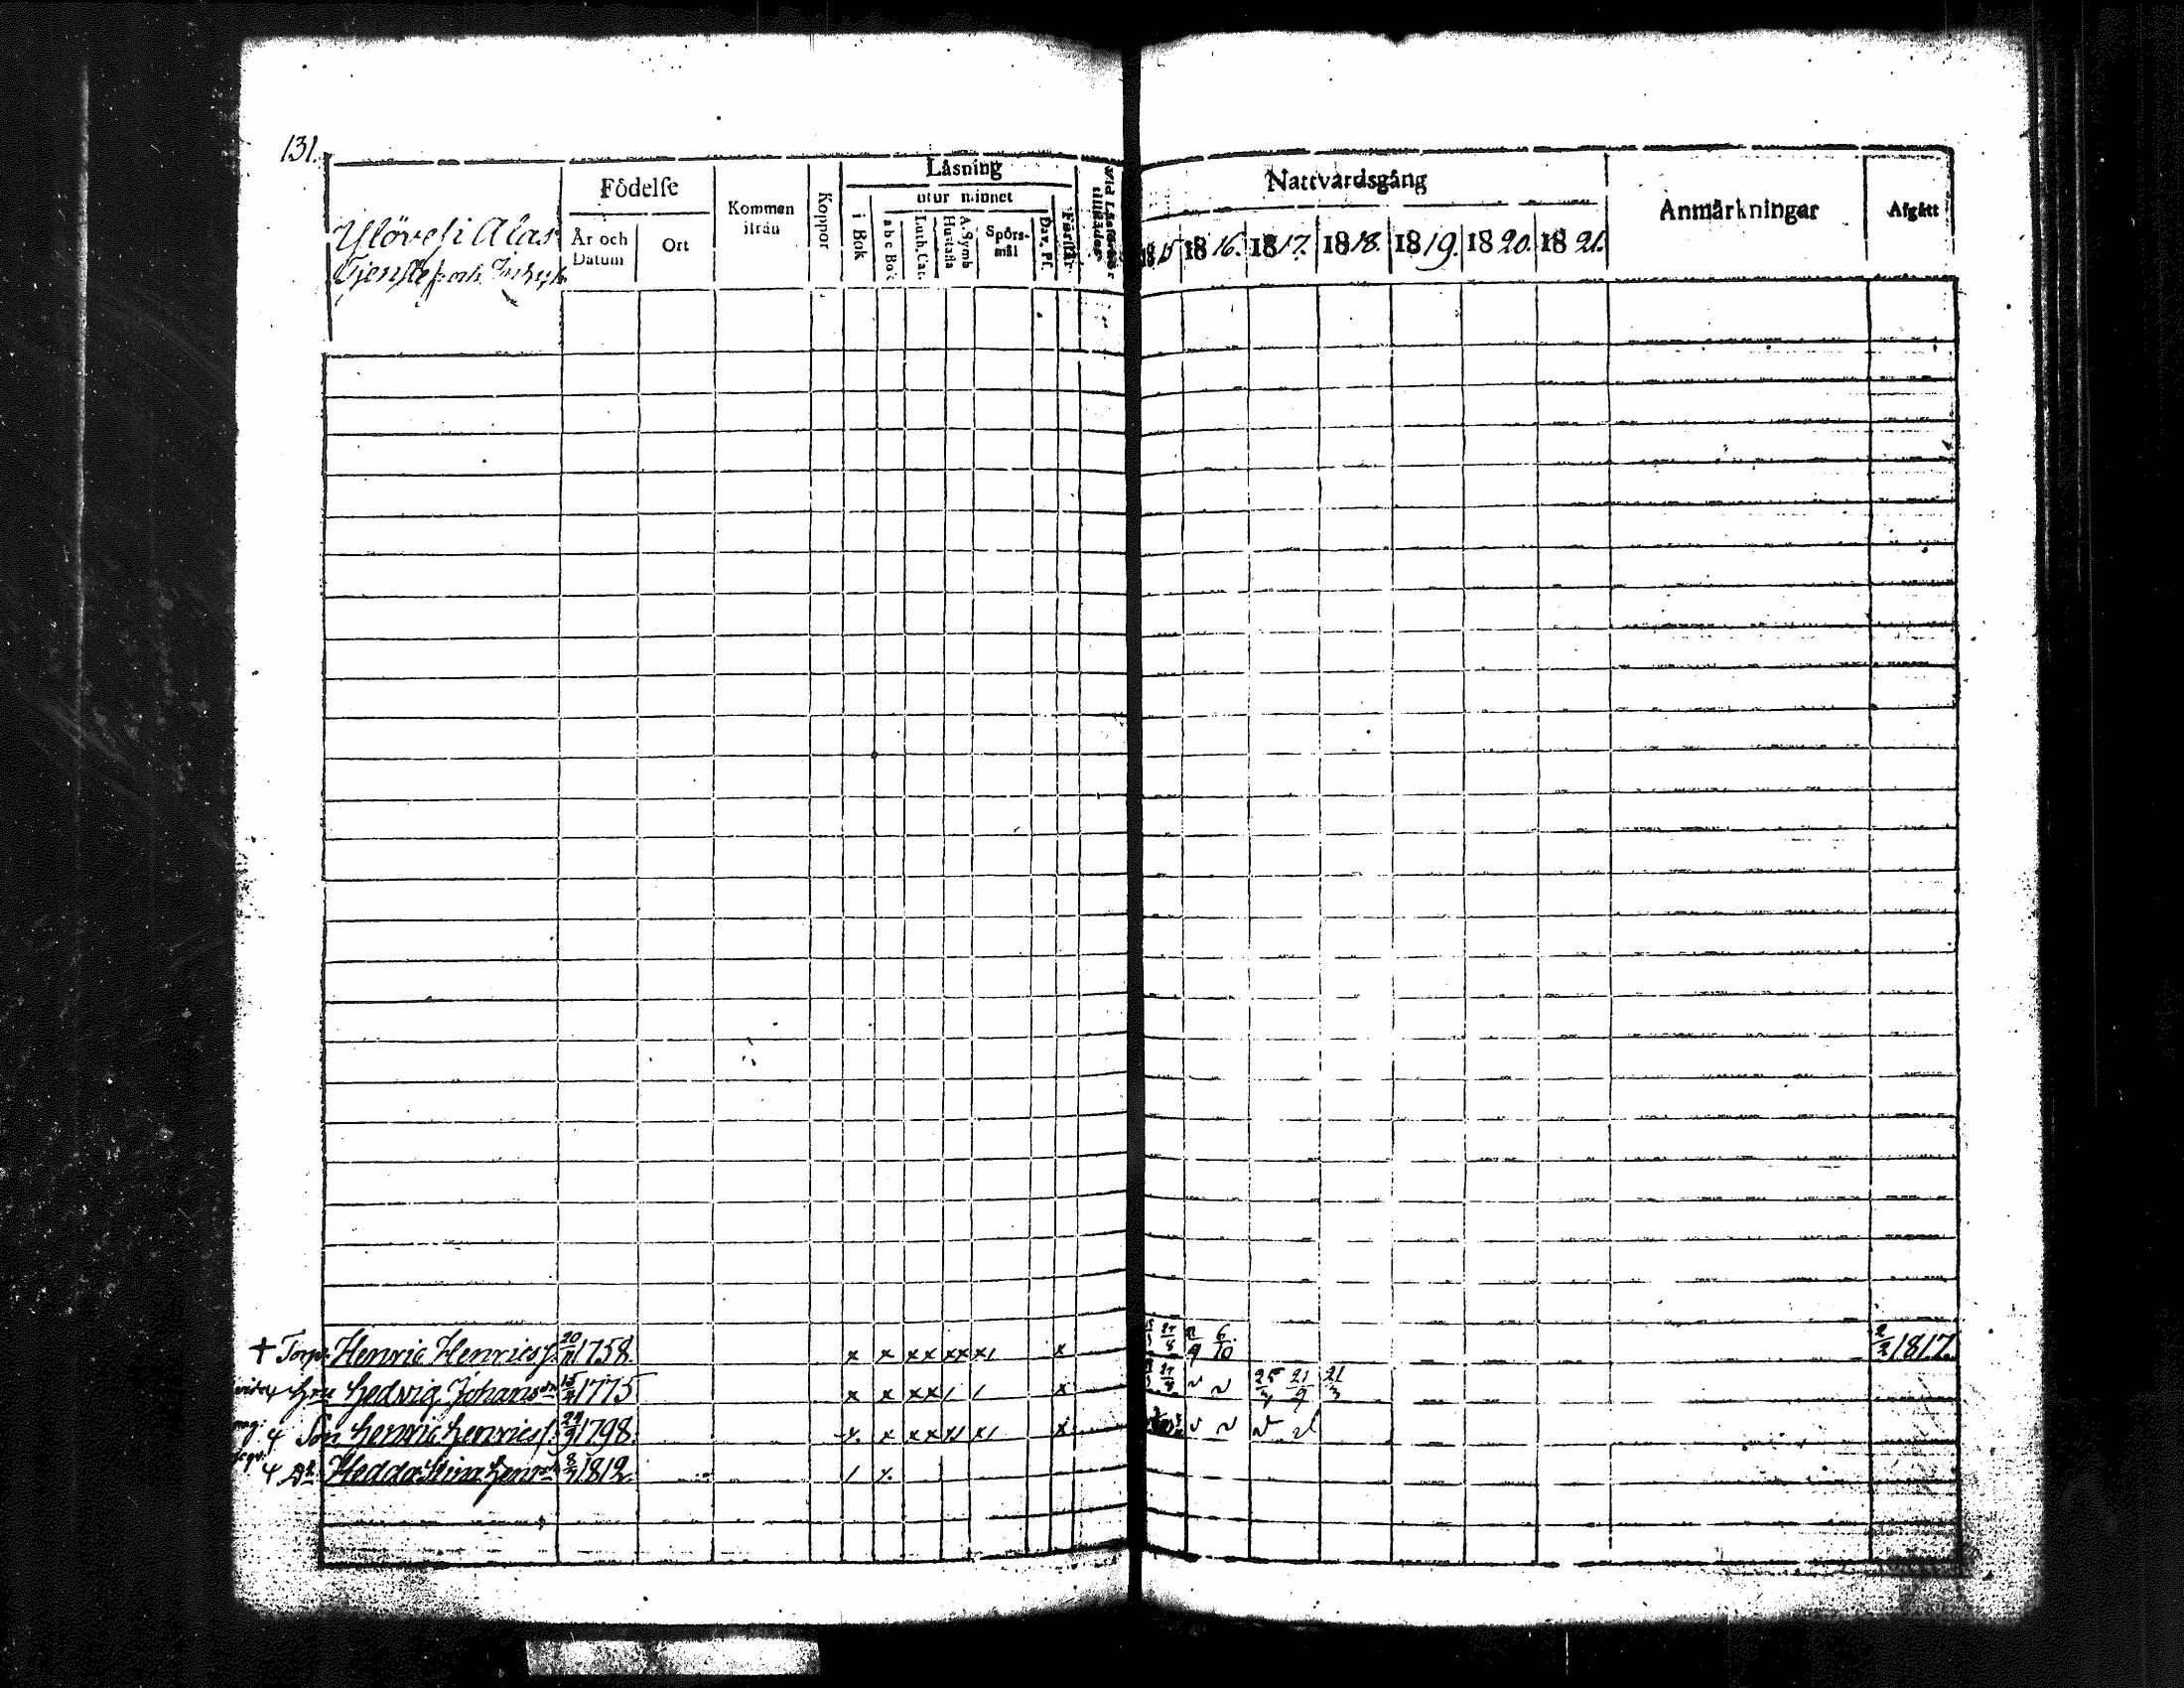 131.
Ylövesi Alas
Tjenstef. och Inhys
Födelse
År och Datum
Ort
Kommen ifrån
Koppor
Läsning
i Bok
utur minnet
a b c Bok
Luth. Cat.
A. Symb Hustafla
Spörs-mål
Dav. Pf.
Förstår
Nattvardsgång
15 1816. 1817. 1818. 1819. 1820. 1821.
Anmärkningar
Afgått
† Torp. Henric Henrics f. 20/11 1758. x x xx xx x/ x 27/8 6/10 2/2 1817.
Hedvig Johans dr 15/11 1775 x x xx / / x 27/8 21/9 21/3
Son Henric Henrics f. 24/9 1798. x x xx x/ x/ x
Dr Hedda Stina Henrs 8/7 1812. /